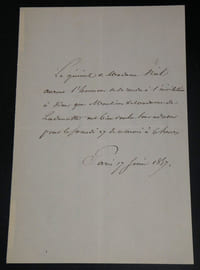 Le général et Madame Niel
auront l'honneur de se rendre à l'invitation
à dîner que Monsieur et Madame de
ont bien voulu leur adresser
pour le samedi 27 de ce mois à 6 heures
Paris 17 juin 1857.